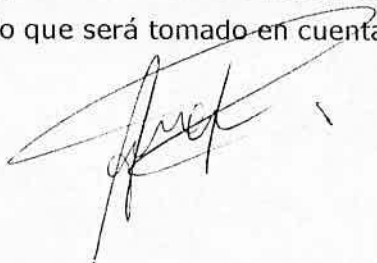 o que será tomado en cuenta